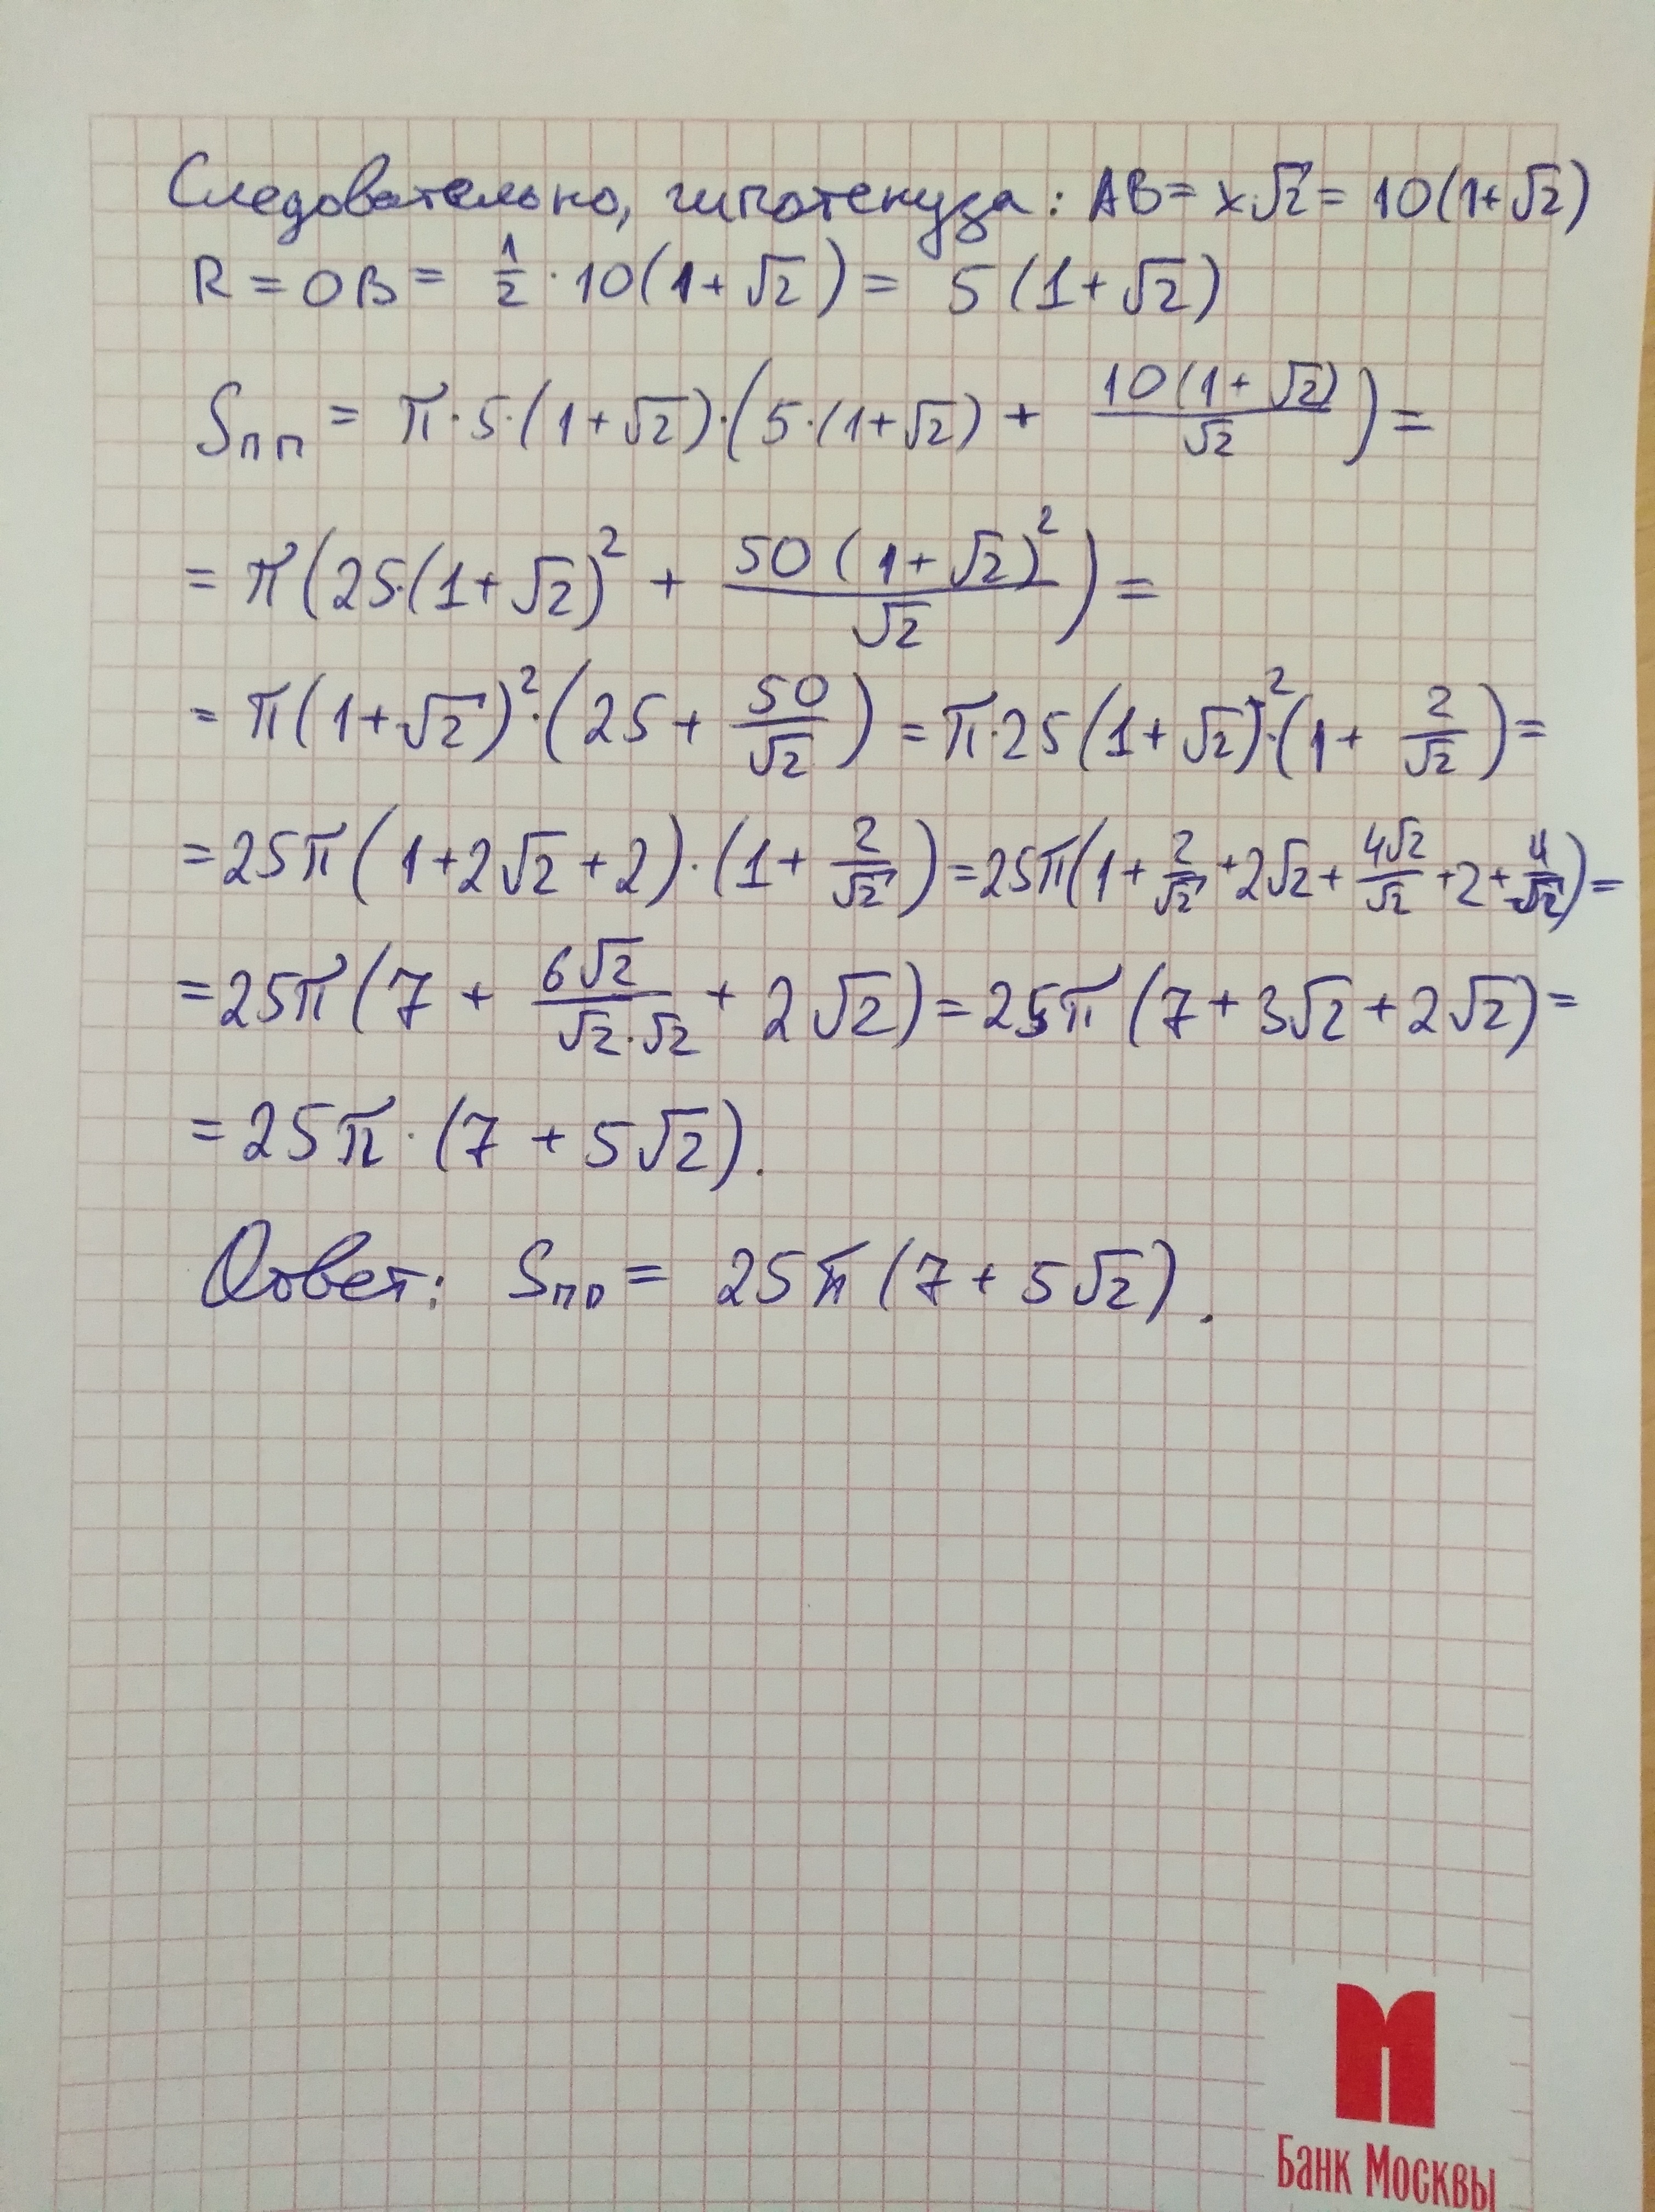 Следовательно, гипотенуза: AB = x√2 = 10(1+√2)
R = OB = 1/2 · 10(1+√2) = 5(1+√2)
Sпп = π·5·(1+√2)·(5·(1+√2) + 10(1+√2)/√2) =
= π(25·(1+√2)² + 50(1+√2)²/√2) =
= π(1+√2)²·(25 + 50/√2) = π·25(1+√2)²·(1 + 2/√2) =
= 25π(1+2√2+2)·(1 + 2/√2) = 25π(1 + 2/√2 + 2√2 + 4√2/√2 + 2 + 4/√2) =
= 25π(7 + 6√2/√2·√2 + 2√2) = 25π(7 + 3√2 + 2√2) =
= 25π·(7 + 5√2).
Ответ: Sпп = 25π(7 + 5√2).
Банк Москвы